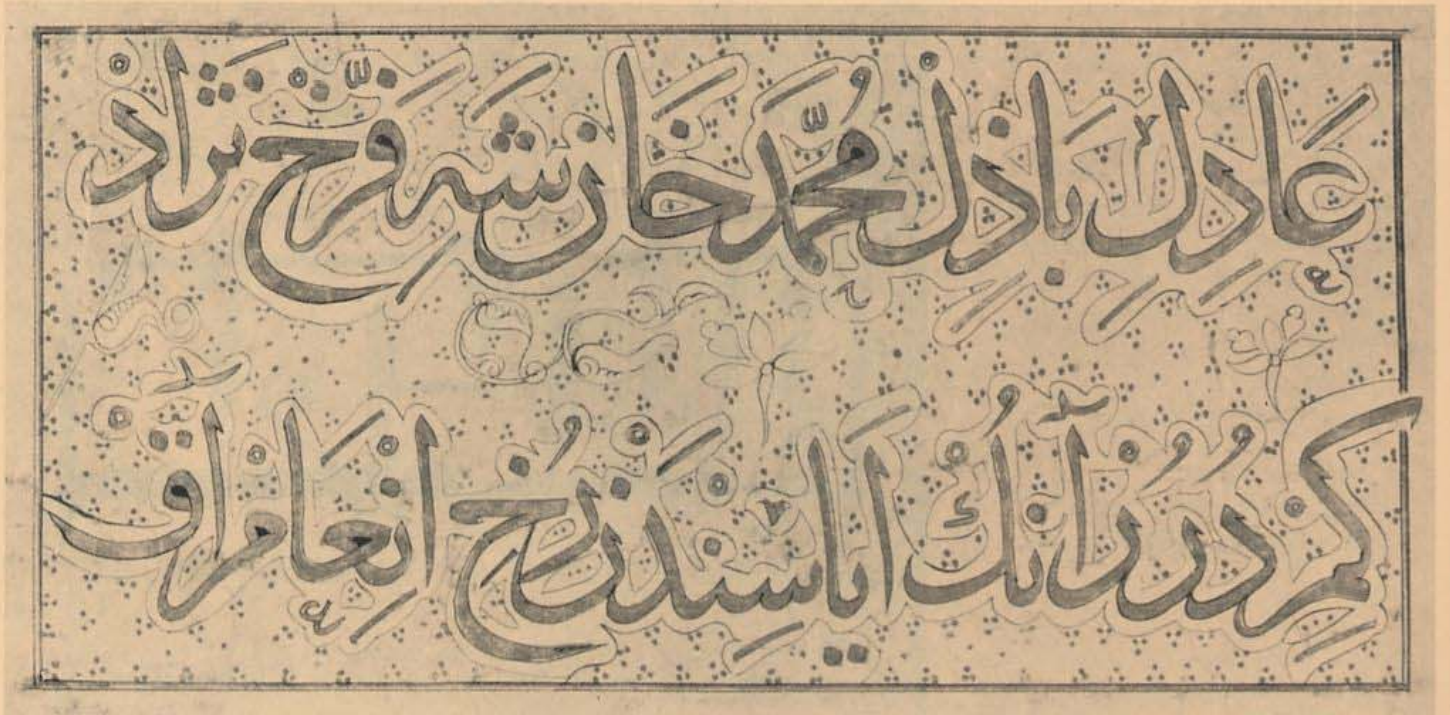 عَادِلِ بَاذِلْ مُحَمَّد خَانِ شَهِ فَرُّخ نَژَادْ
كِمْ دُرُرْ آنُكْ اَيَاسِنْدَنْ رُخِ اِنْعَامْ آقْ